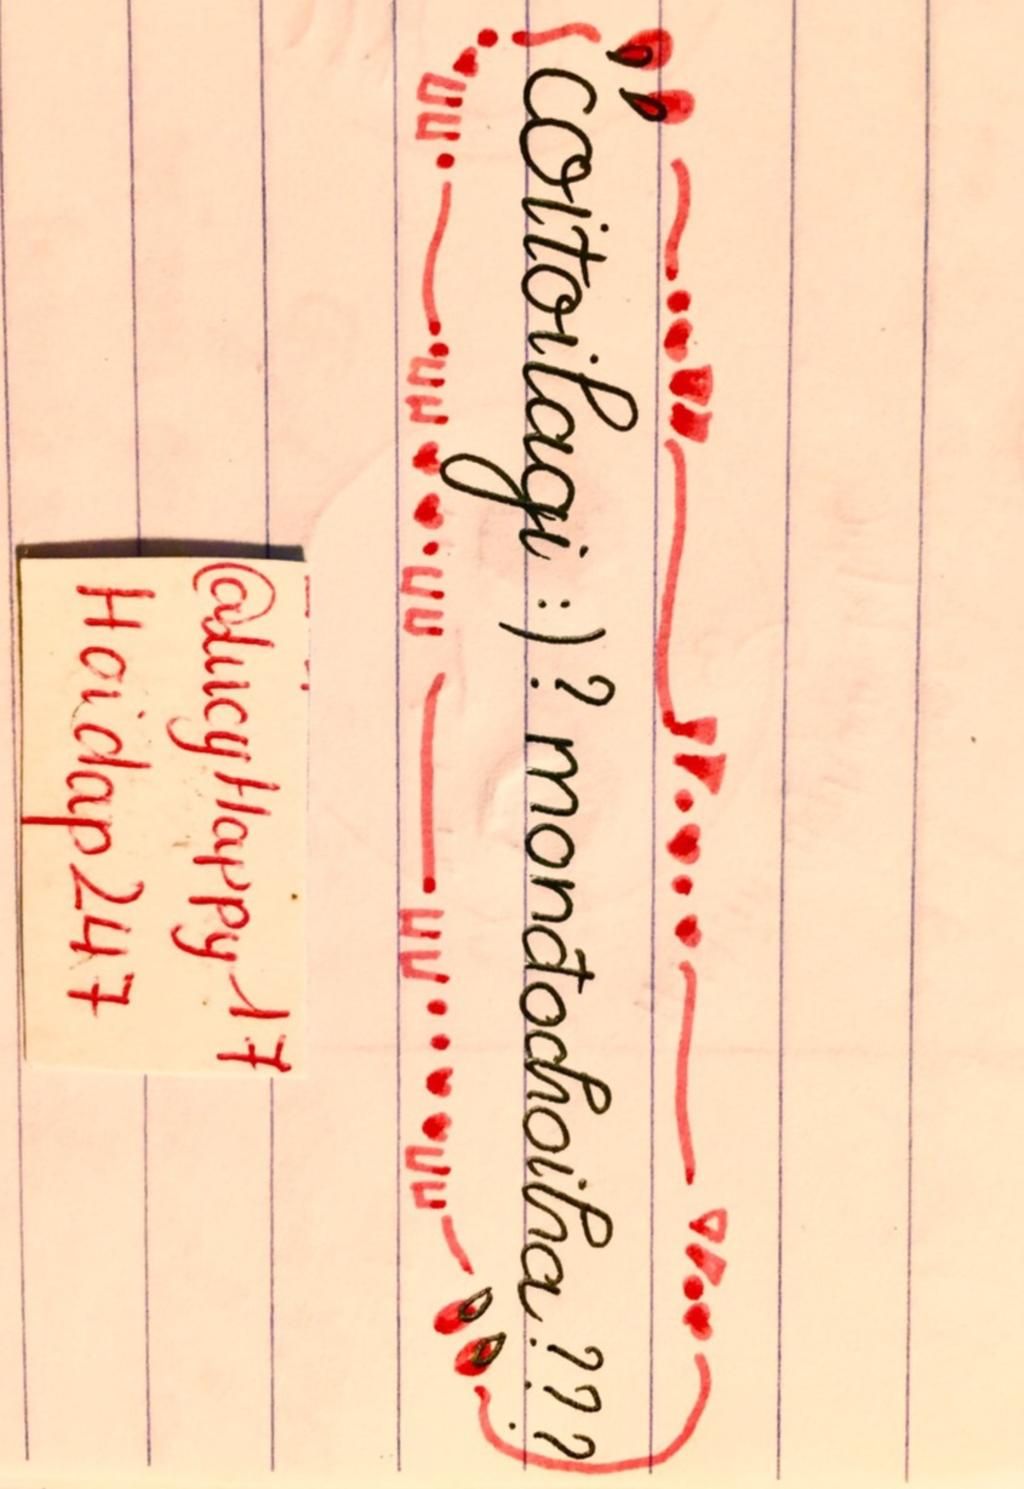 coitoilagi :) ? mondochoiha ???
@ducyHappy17
Hoidap247